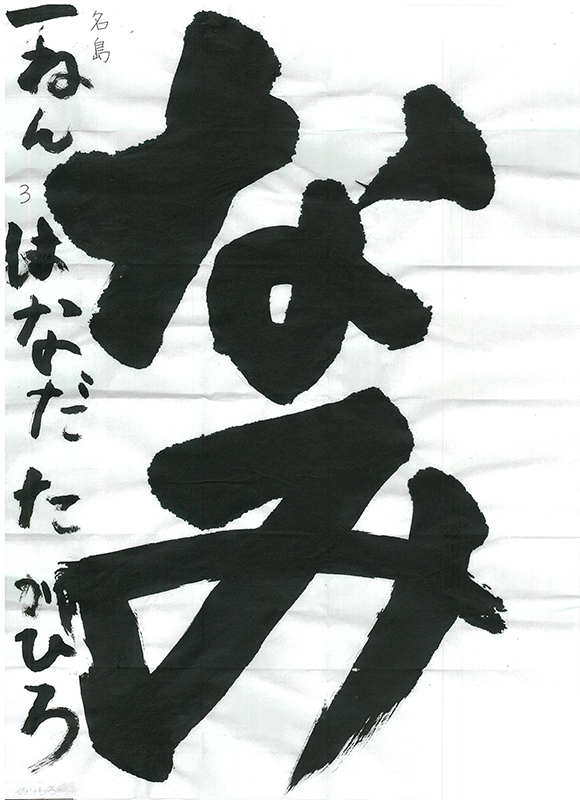 なみ
名島
一ねん 3 はなだ たかひろ